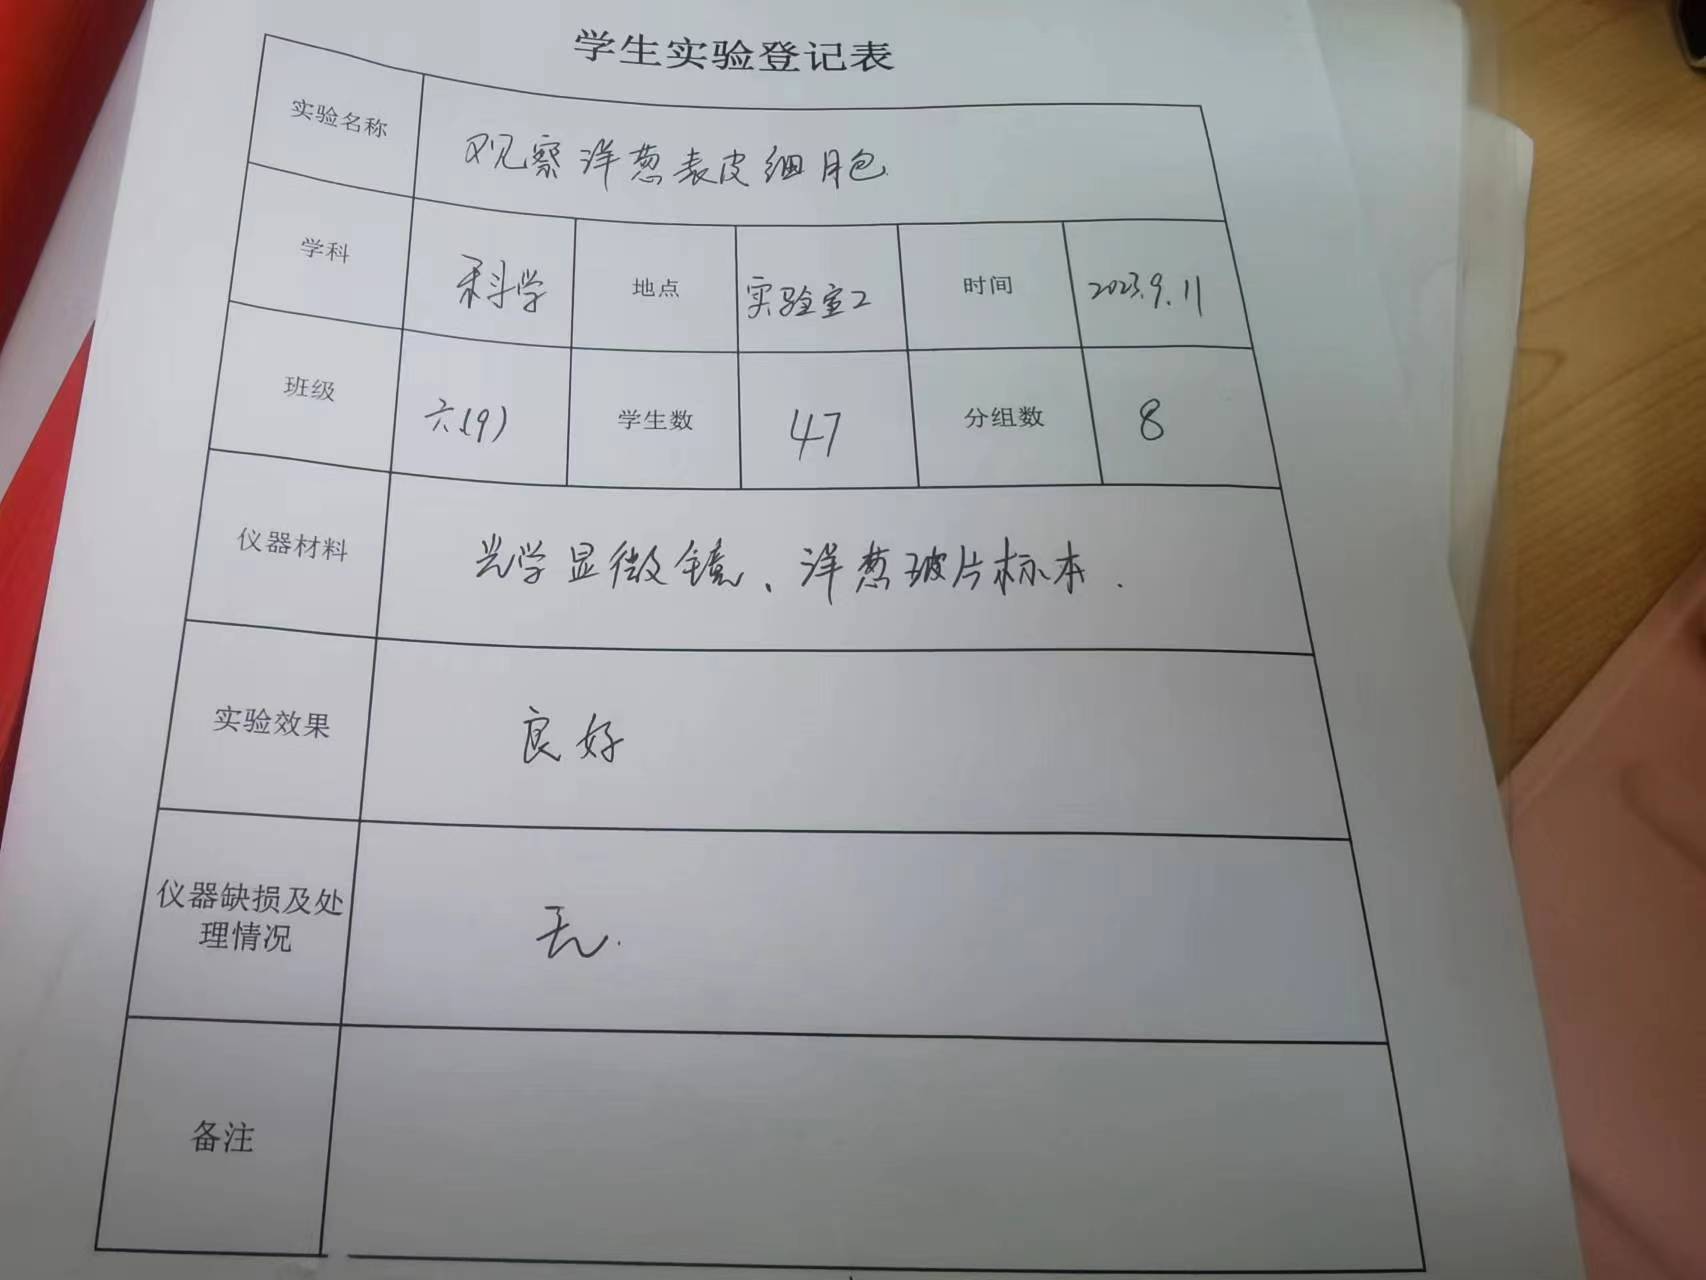 学生实验登记表
实验名称 观察洋葱表皮细胞
学科 科学 地点 实验室2 时间 2023.9.11
班级 六(9) 学生数 47 分组数 8
仪器材料 光学显微镜、洋葱玻片标本.
实验效果 良好
仪器缺损及处
理情况 无.
备注